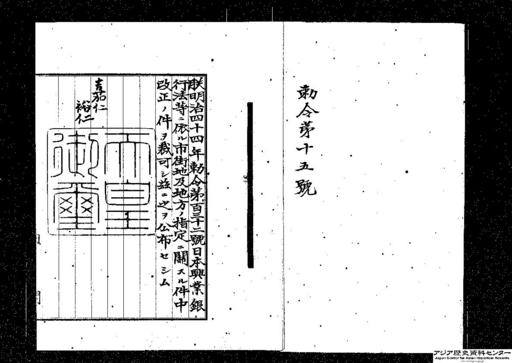 勅令第十五號
朕明治四十四年勅令第百三十二號日本興業銀
行法等ニ依ル市街地及地方ノ指定ニ關スル件中
改正ノ件ヲ裁可シ玆ニ之ヲ公布セシム
嘉仁
裕仁
天皇
御璽
アジア歴史資料センター
Japan Center for Asian Historical Records